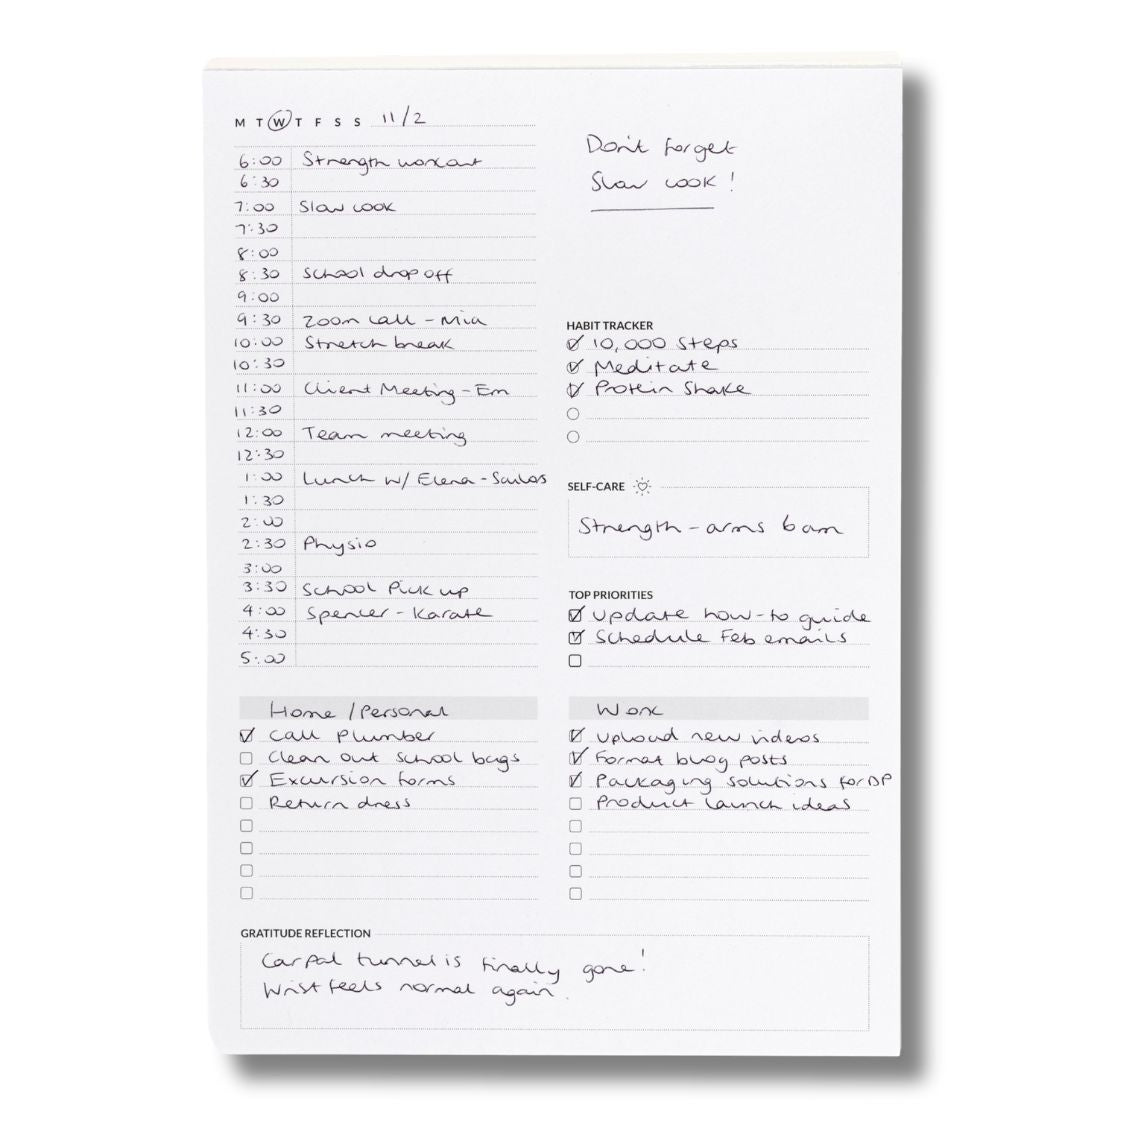 M T W T F S S 11/2
6:00 Strength workout
6:30
7:00 Slow cook
7:30
8:00
8:30 School drop off
9:00
9:30 Zoom call - Mia
10:00 Stretch break
10:30
11:00 Client Meeting - Em
11:30
12:00 Team meeting
12:30
1:00 Lunch w/ Elena - Sailors
1:30
2:00
2:30 Physio
3:00
3:30 School Pick up
4:00 Spencer - Karate
4:30
5:00
Don't forget
Slow cook!
HABIT TRACKER
10,000 Steps
Meditate
Protein Shake
SELF-CARE
Strength - arms 6am
TOP PRIORITIES
Update how-to guide
Schedule Feb emails
Home / Personal
Call Plumber
Clean out school bags
Excursion forms
Return dress
Work
Upload new videos
Format blog posts
Packaging solutions for DP
Product launch ideas
GRATITUDE REFLECTION
Carpal tunnel is finally gone!
Wrist feels normal again.